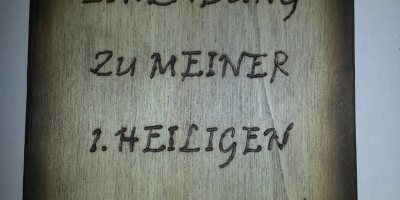 EINLADUNG
ZU MEINER
1. HEILIGEN